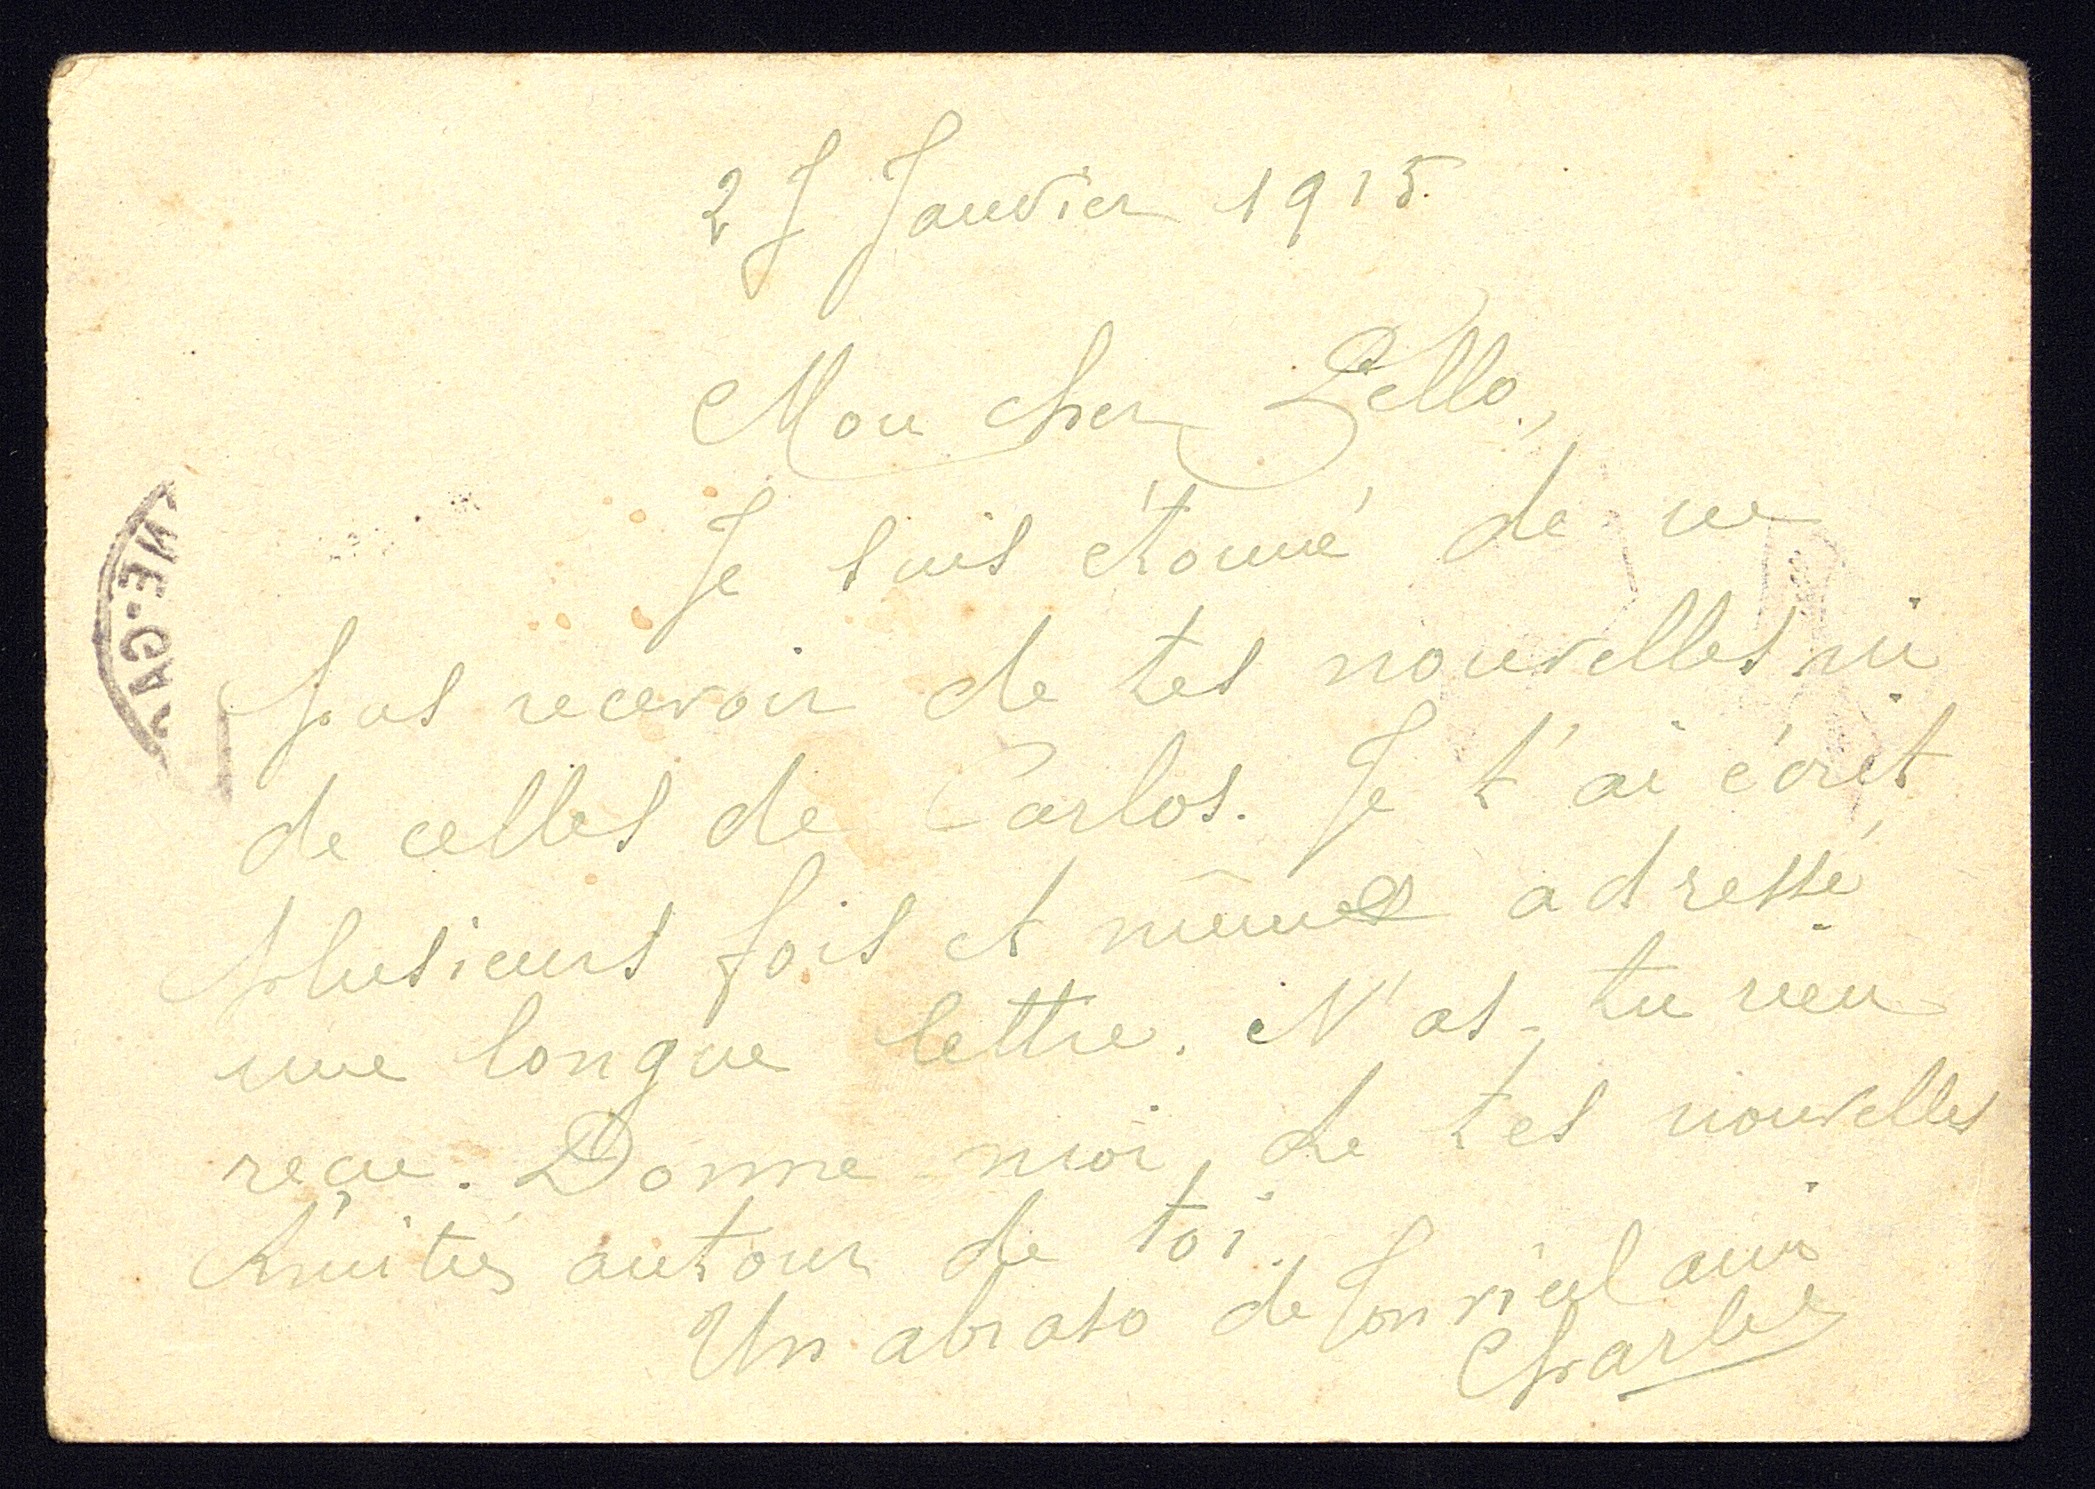 27 Janvier 1915.
Mon cher Lello,
Je suis étonné de ne
pas recevoir de tes nouvelles ni
de celles de Carlos. Je t'ai écrit
plusieurs fois et même adressé
une longue lettre. N'as-tu rien
reçu. Donne moi de tes nouvelles
Amitiés autour de toi.
Un abraso de ton vieil ami
Charles
NE-GA